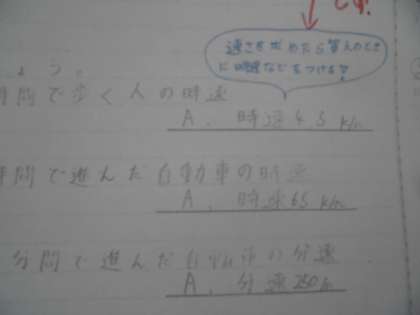 です。
速さを求めたら答えのとき
に時速などをつける?
時間で歩く人の時速
A. 時速4.5km
時間で進んだ自動車の時速
A. 時速65km
分間で進んだ自転車の分速
A. 分速250m